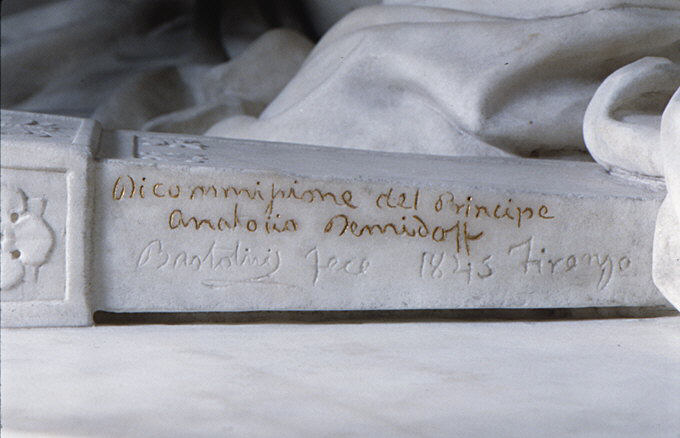 Di commissione del Principe
Anatolio Demidoff
Bartolini fece 1845 Firenze